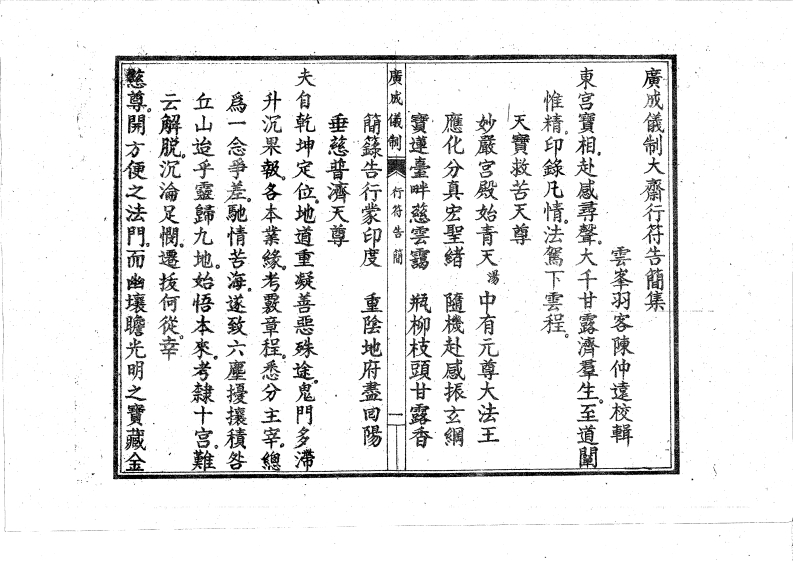 廣成儀制大齋行符告簡集
雲峯羽客陳仲遠校輯
東宮寶相。赴感尋聲。大千甘露濟羣生。至道闡
惟精。印錄凡情。法駕下雲程。
天寶救苦天尊
妙嚴宮殿始青天 湯 中有元尊大法王
應化分真宏聖緒 隨機赴感振玄綱
寶蓮臺畔慈雲靄 瓶柳枝頭甘露香
廣成儀制 行符告簡 一
簡籙告行蒙印度 重陰地府盡回陽
垂慈普濟天尊
夫自乾坤定位。地道重凝。善惡殊途。鬼門多滯
升沉果報。各本業緣。考覈章程。悉分主宰。總
為一念爭差。馳情苦海。遂致六塵擾攘。積咎
丘山。迨乎靈歸九地。始悟本來。考隸十宮。難
云解脫。沉淪足憫。遷拔何從。幸
慈尊。開方便之法門。而幽壤瞻光明之寶藏。金